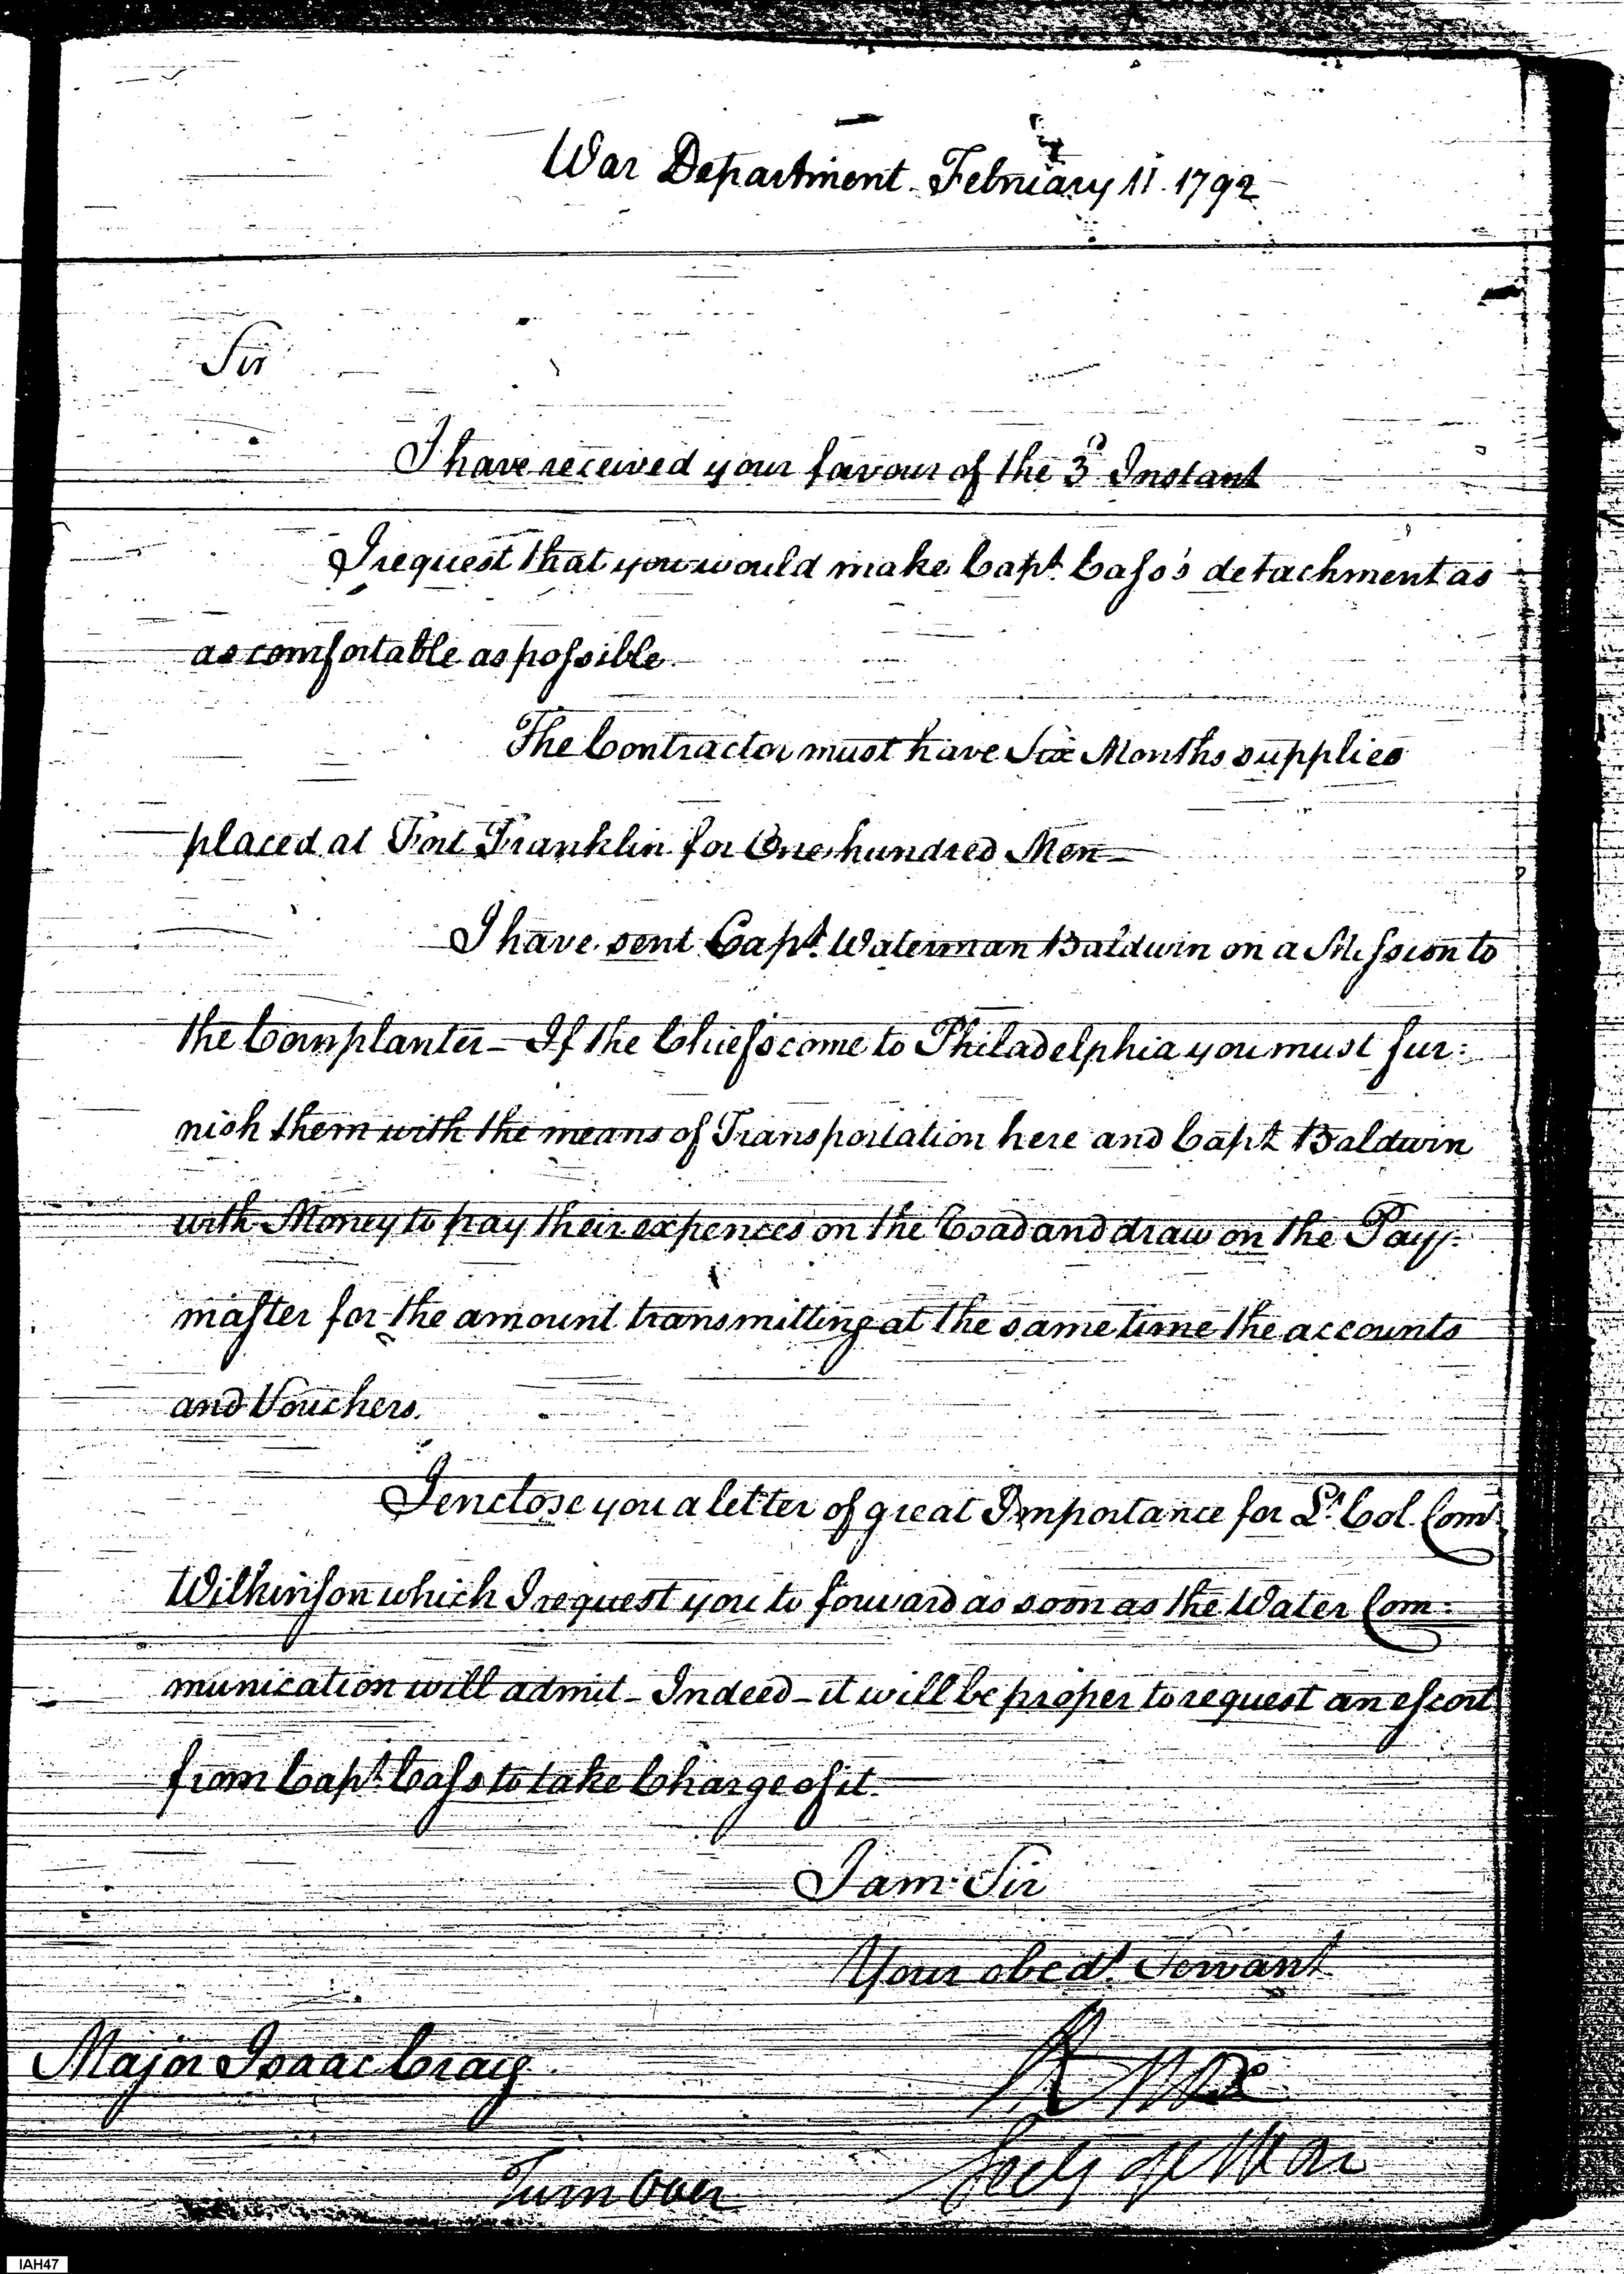 War Department February 11. 1792
Sir
I have received your favour of the 3d Instant
I request that you would make Capt. Cass's detachment as
as comfortable as possible.
The Contractor must have Six Months supplies
placed at Fort Franklin for One hundred Men—
I have sent Capt. Waterman Baldwin on a Mission to
the Cornplanter— If the Chiefs come to Philadelphia you must fur:
nish them with the means of Transportation here and Capt Baldwin
with Money to pay their expences on the Road and draw on the Pay:
master for the amount transmitting at the same time the accounts
and Vouchers.
I enclose you a letter of great Importance for Lt. Col. Comt
Wilkinson which I request you to forward as soon as the Water Com:
munication will admit— Indeed— it will be proper to request an escort
from Capt. Cass to take Charge of it.
I am Sir
Your obedt. Servant
Major Isaac Craig
HKnox
Secy of War
Turn Over
IAH47